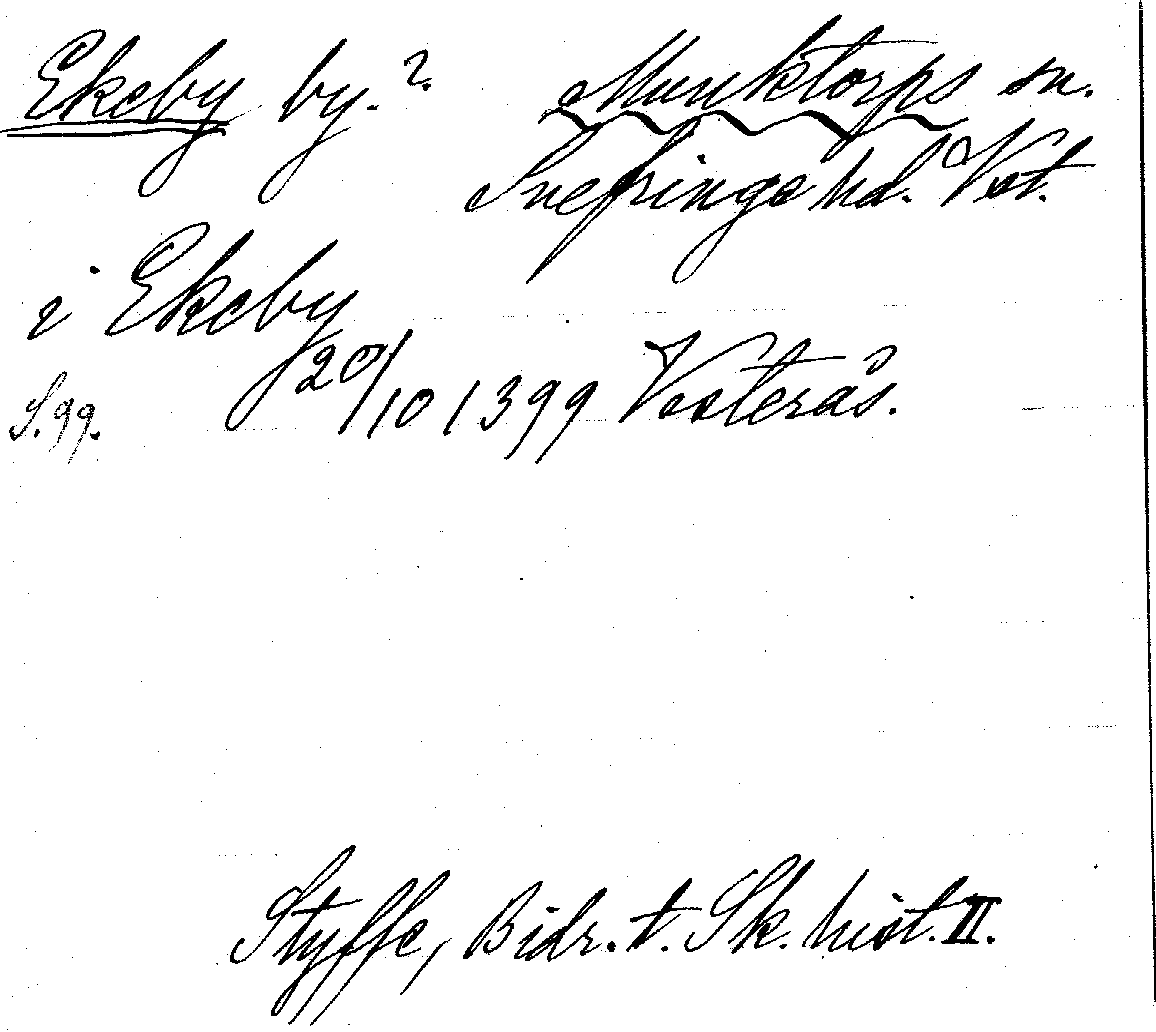 Ekeby by.? Munktorps sn.
Snefringe hd. Vst.
i Ekeby
20/10 1399 Vesterås.
S. 99.
Styffe, Bidr. t. Sk. hist. II.